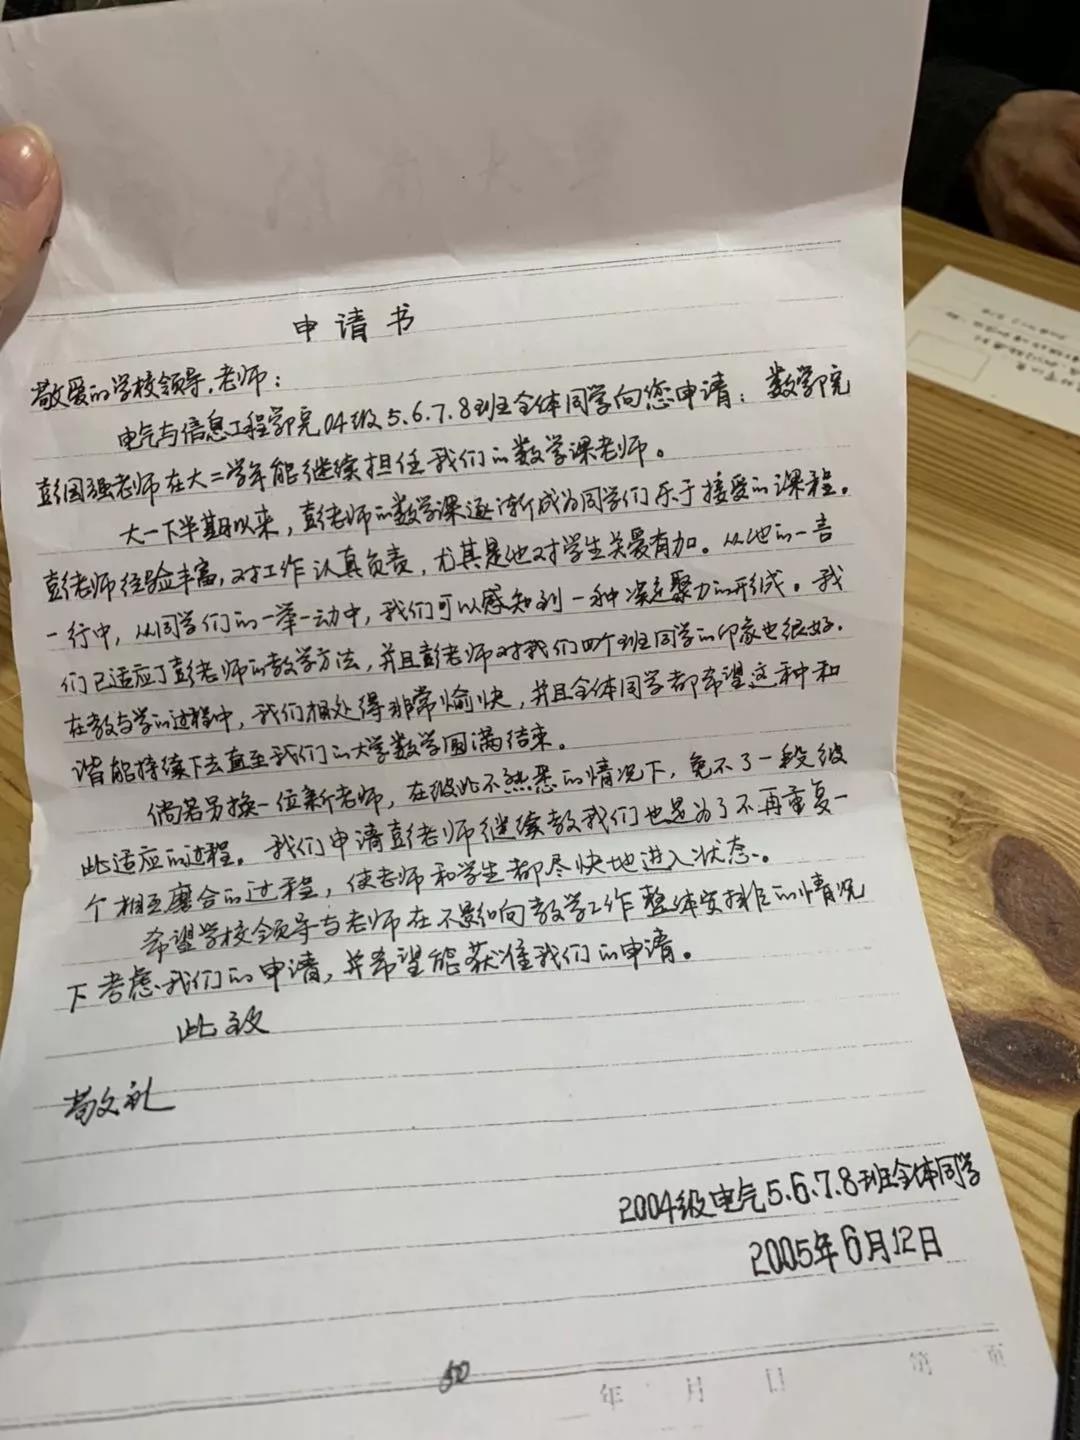 申请书
敬爱的学校领导、老师：
电气与信息工程学院04级5、6、7、8班全体同学向您申请：数学院
彭国强老师在大二学年能继续担任我们的数学课老师。
大一下半期以来，彭老师的数学课逐渐成为同学们乐于接受的课程。
彭老师经验丰富，对工作认真负责，尤其是他对学生关爱有加。从他的一言
一行中，从同学们的一举一动中，我们可以感知到一种凝聚力的形成。我
们已适应了彭老师的教学方法，并且彭老师对我们四个班同学的印象也很好。
在教与学的过程中，我们相处得非常愉快，并且全体同学都希望这种和
谐能持续下去直至我们的大学数学圆满结束。
倘若另换一位新老师，在彼此不熟悉的情况下，免不了一段彼
此适应的过程。我们申请彭老师继续教我们也是为了不再重复一
个相互磨合的过程，使老师和学生都尽快地进入状态。
希望学校领导与老师在不影响教学工作整体安排的情况
下考虑我们的申请，并希望能获准我们的申请。
此致
敬礼
2004级电气5、6、7、8班全体同学
2005年6月12日
50
年 月 日 第 页